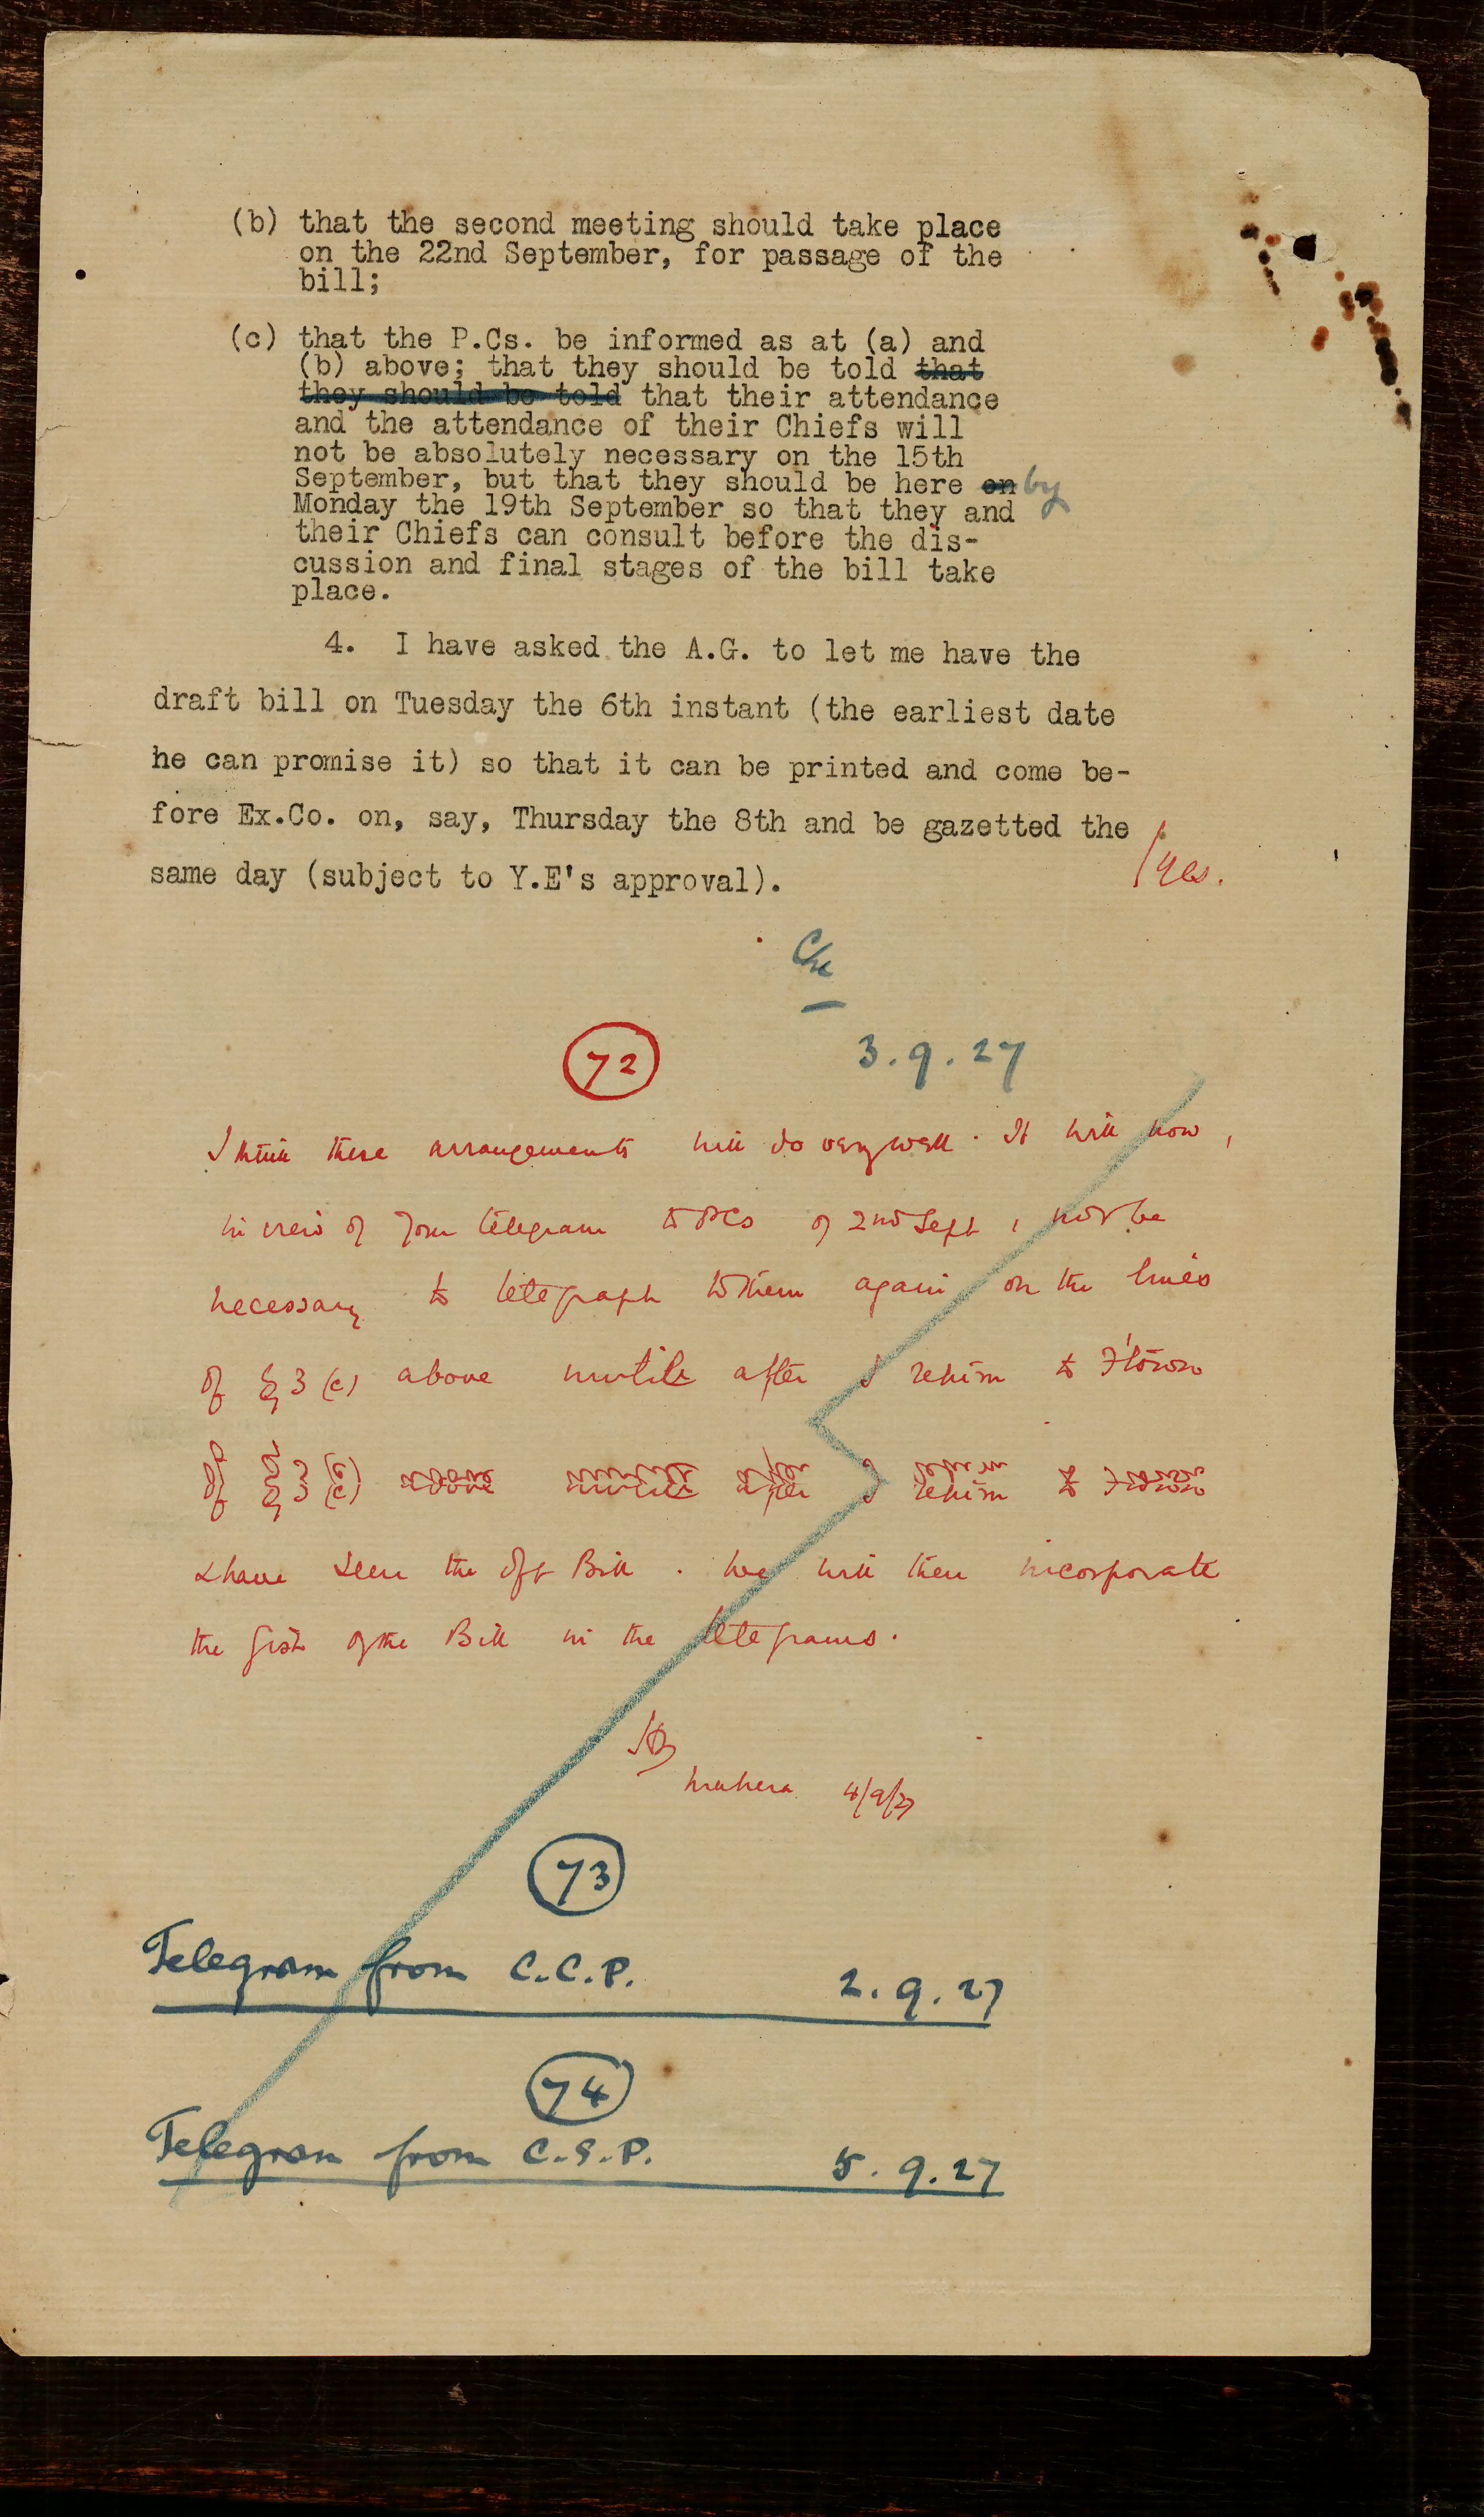 (b) that the second meeting should take place
on the 22nd September, for passage of the
bill;
(c) that the P.Cs. be informed as at (a) and
(b) above; that they should be told that
they should be told that their attendance
and the attendance of their Chiefs will
not be absolutely necessary on the 15th
September, but that they should be here on by
Monday the 19th September so that they and
their Chiefs can consult before the dis-
cussion and final stages of the bill take
place.
4. I have asked the A.G. to let me have the
draft bill on Tuesday the 6th instant (the earliest date
he can promise it) so that it can be printed and come be-
fore Ex.Co. on, say, Thursday the 8th and be gazetted the
same day (subject to Y.E's approval).
Yes.
3.9.27
72
I think these arrangements will do very well. It will now,
in view of your telegram to PCs of 2nd Sept, not be
necessary to telegraph to them again on the lines
of § 3 (c) above until after I return to F'town
of § 3 (c) above until after I return to F'town
& have seen the dft Bill. We will then incorporate
the gist of the Bill in the telegrams.
4/9/27
73
Telegram from C.C.P. 2.9.27
74
Telegram from C.S.P. 5.9.27